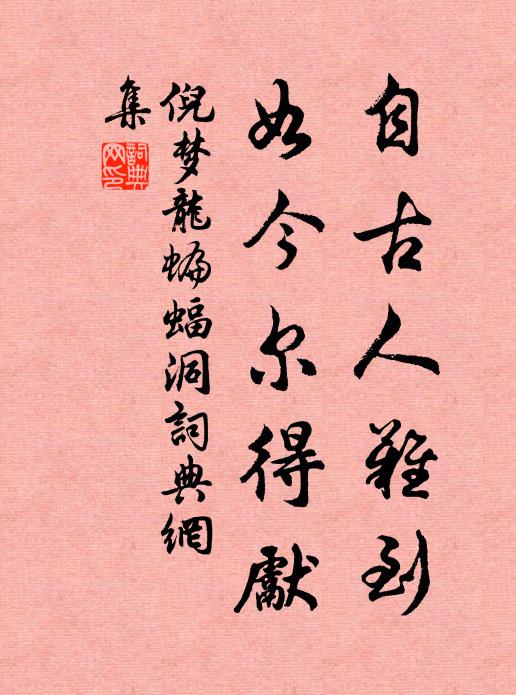 自古人难到
如今尔得獻
倪梦龍蝙蝠洞詞典網
集
詞典網印